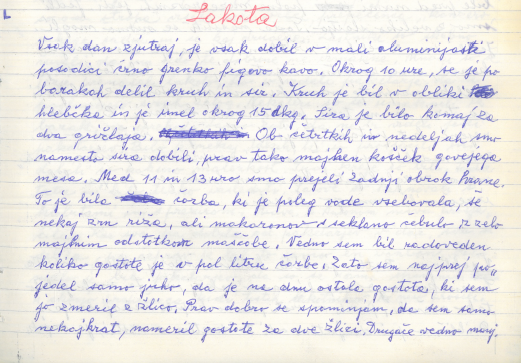 Lakota
Vsak dan zjutraj, je vsak dobil v mali aluminijasti
posodici črno grenko figovo kavo. Okrog 10 ure, se je po
barakah delil kruh in sir. Kruh je bil v obliki
hlebčka in je imel okrog 15 dkg. Sira je bilo komaj za
dva grižljaja. Ob četrtkih in nedeljah smo
namesto sira dobili, prav tako majhen košček govejega
mesa. Med 11 in 13 uro smo prejeli zadnji obrok hrane.
To je bila čorba, ki je poleg vode vsebovala, še
nekaj zrn riža, ali makaronov s sekljano čebulo z zelo
majhnim odstotkom maščobe. Vedno sem bil radoveden
koliko gostote je v pol litru čorbe. Zato sem najprej po„
jedel samo juho, da je na dnu ostala gostota, ki sem
jo zmeril z žlico. Prav dobro se spominjam, da sem samo
nekajkrat, nameril gostote za dve žlici. Drugače vedno manj.